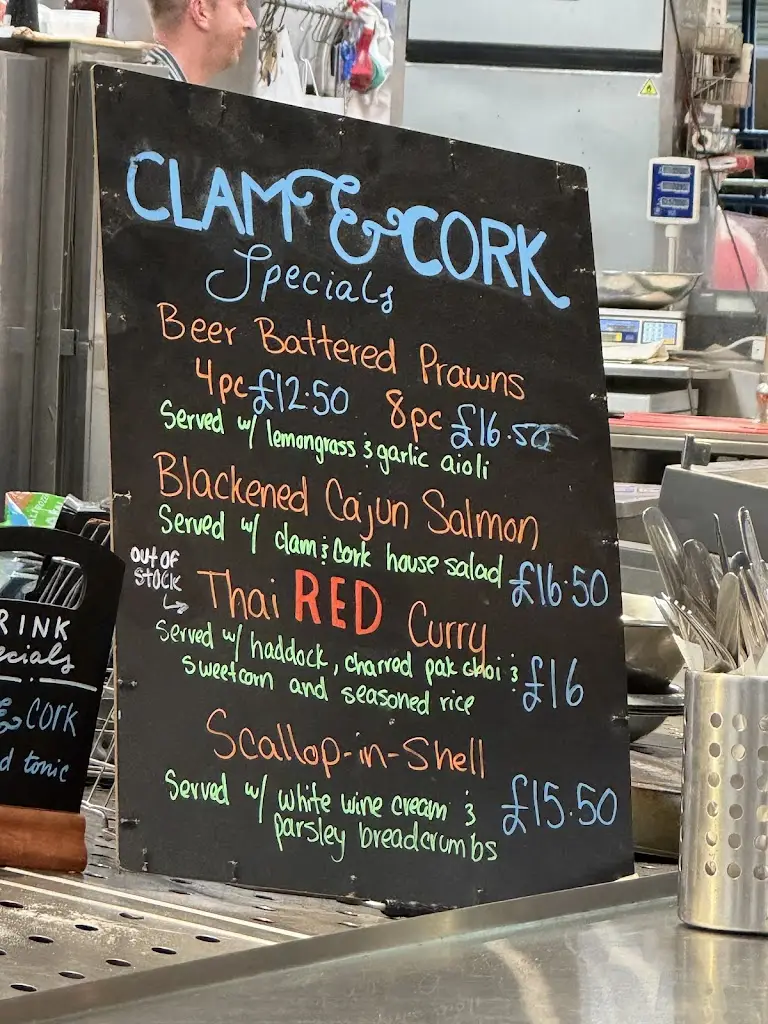 CLAM & CORK
Specials
Beer Battered Prawns
4pc £12.50 8pc £16.50
Served w/ lemongrass & garlic aioli
Blackened Cajun Salmon
Served w/ clam & cork house salad £16.50
OUT OF
STOCK
Thai RED Curry
Served w/ haddock, charred pak choi &
sweetcorn and seasoned rice £16
Scallop-in-Shell
Served w/ white wine cream &
parsley breadcrumbs £15.50
RINK
ecials
& Cork
d tonic